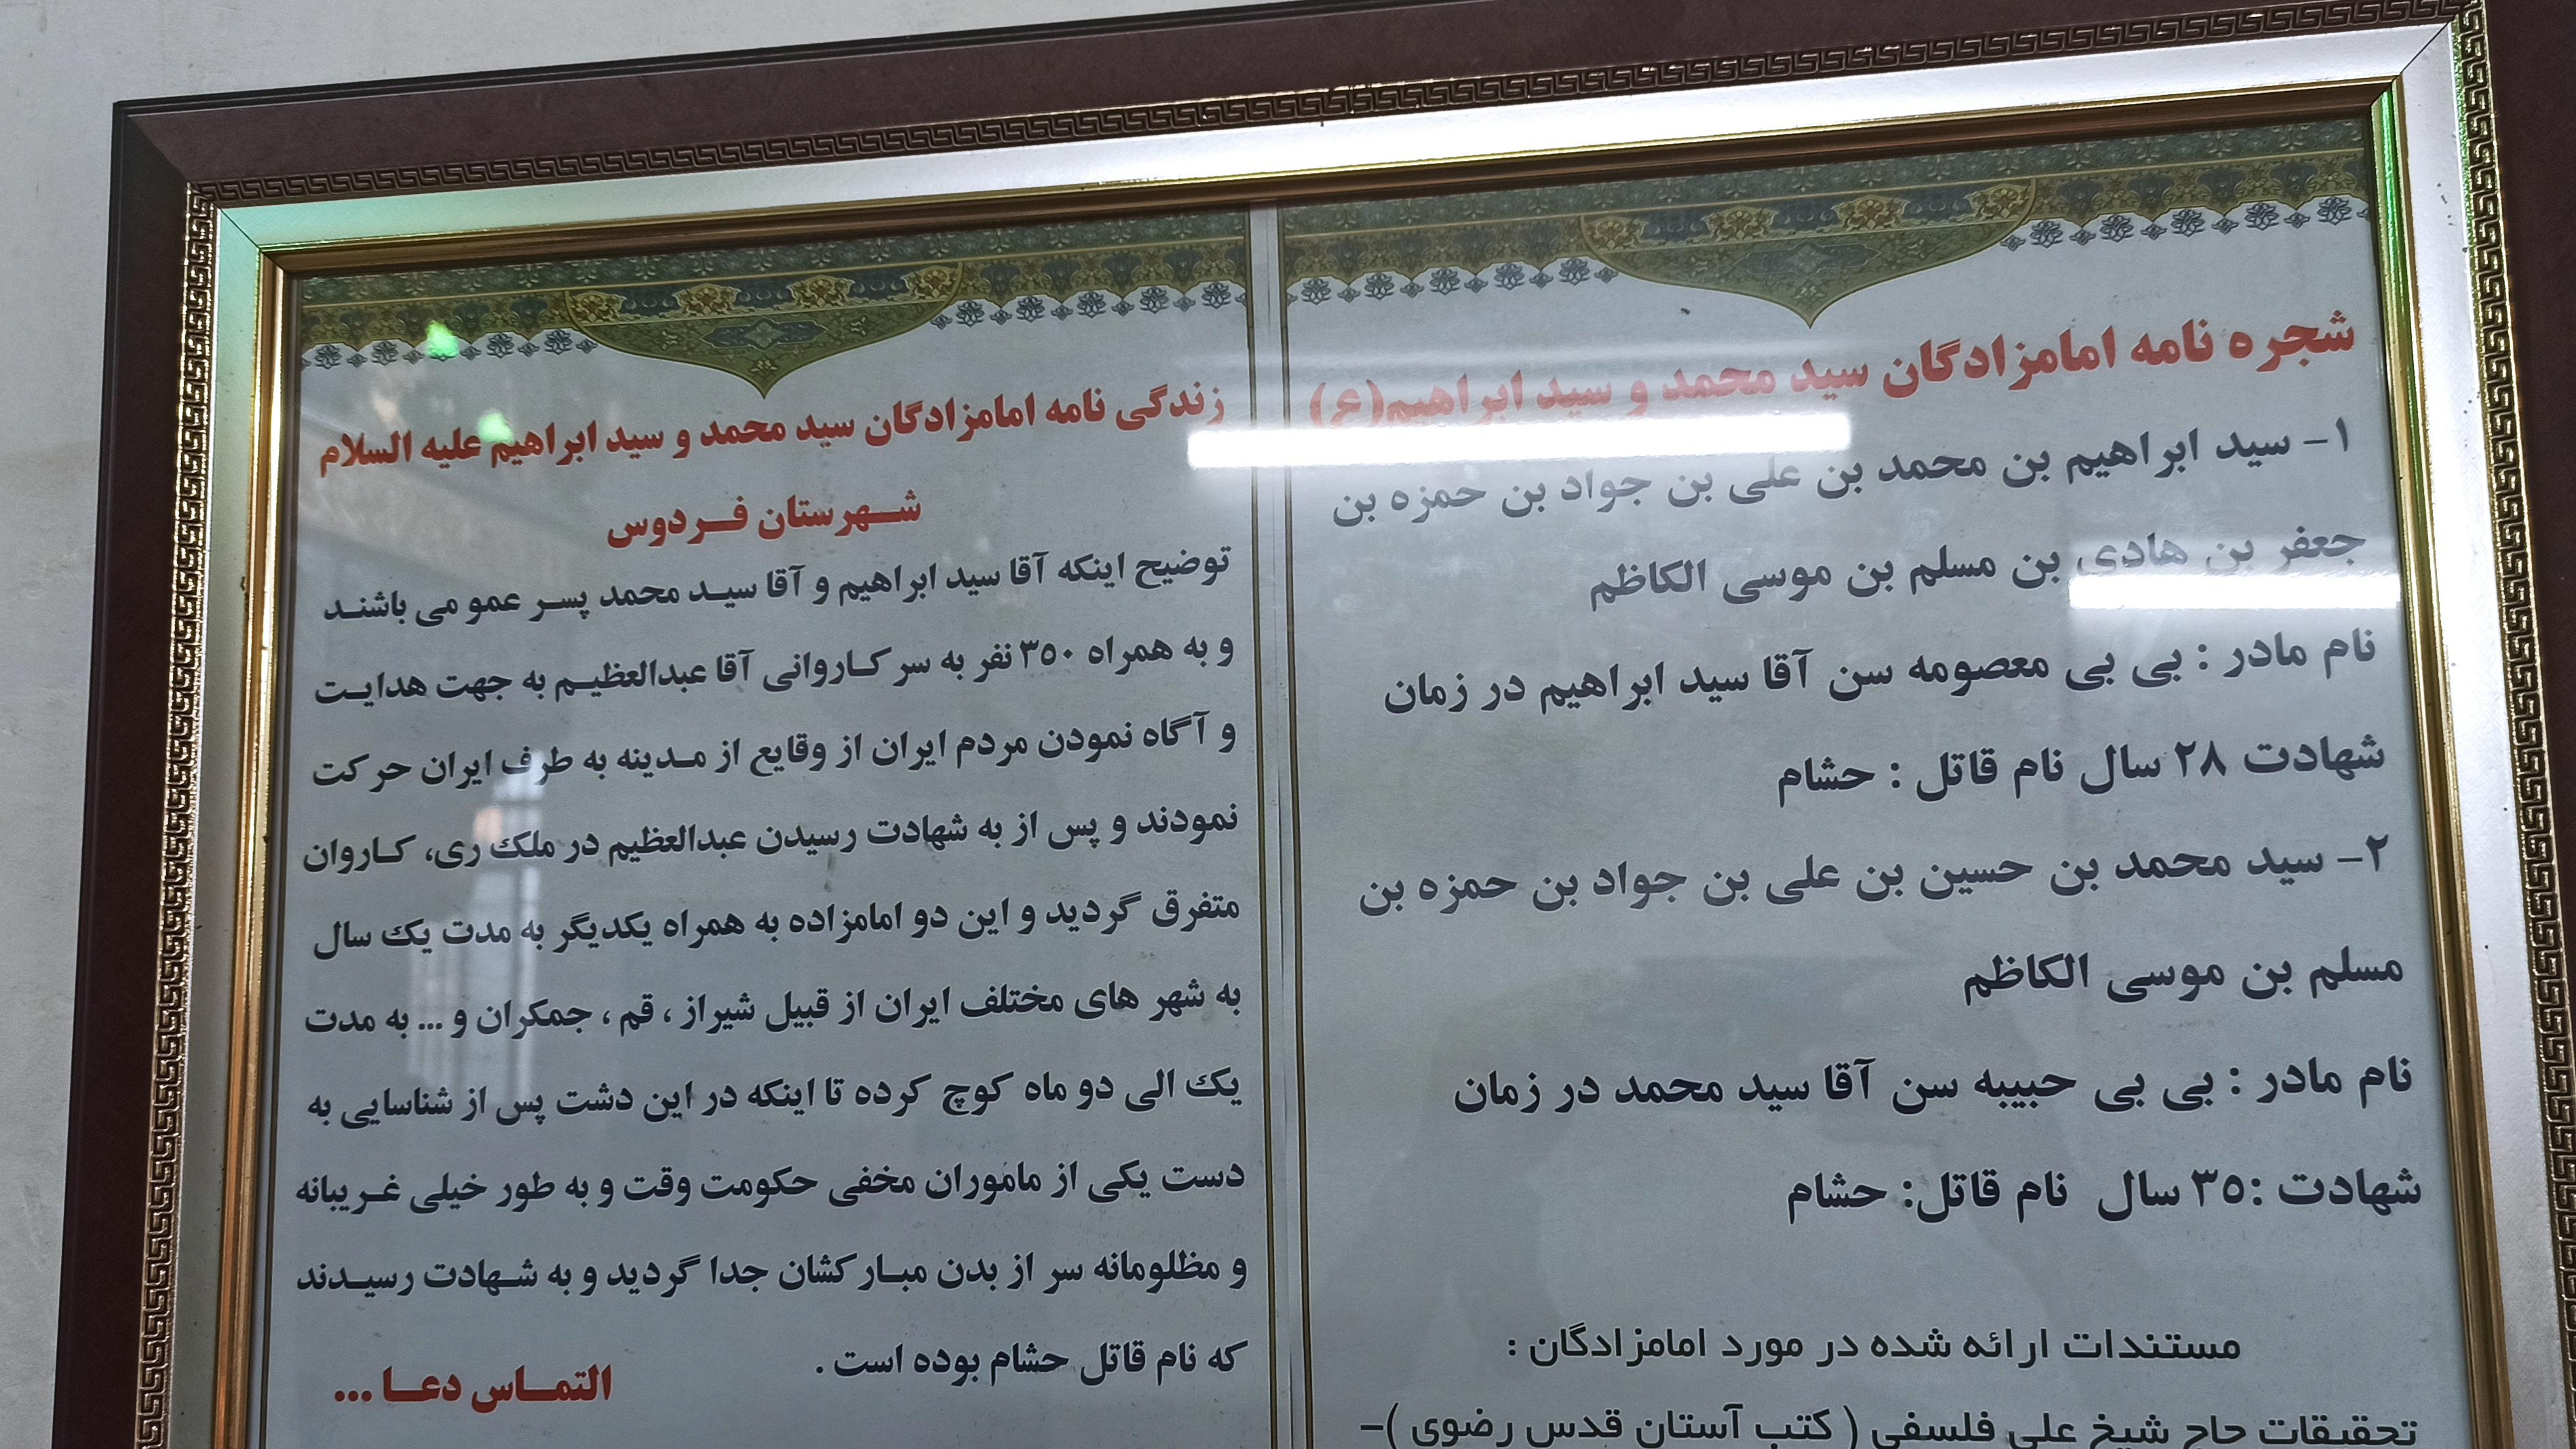 شجره نامه امامزادگان سید محمد و سید ابراهیم(ع)
۱- سید ابراهیم بن محمد بن علی بن جواد بن حمزه بن
جعفر بن هادی بن مسلم بن موسی الکاظم
نام مادر : بی بی معصومه سن آقا سید ابراهیم در زمان
شهادت ۲۸ سال نام قاتل : حشام
۲- سید محمد بن حسین بن علی بن جواد بن حمزه بن
مسلم بن موسی الکاظم
نام مادر : بی بی حبیبه سن آقا سید محمد در زمان
شهادت :۳۵ سال نام قاتل: حشام
مستندات ارائه شده در مورد امامزادگان :
تحقیقات حاج شیخ علی فلسفی ( کتب آستان قدس رضوی )-
زندگی نامه امامزادگان سید محمد و سید ابراهیم علیه السلام
شهرستان فردوس
توضیح اینکه آقا سید ابراهیم و آقا سید محمد پسر عمو می باشند
و به همراه ۳۵۰ نفر به سر کاروانی آقا عبدالعظیم به جهت هدایت
و آگاه نمودن مردم ایران از وقایع از مدینه به طرف ایران حرکت
نمودند و پس از به شهادت رسیدن عبدالعظیم در ملک ری، کاروان
متفرق گردید و این دو امامزاده به همراه یکدیگر به مدت یک سال
به شهر های مختلف ایران از قبیل شیراز ، قم ، جمکران و ... به مدت
یک الی دو ماه کوچ کرده تا اینکه در این دشت پس از شناسایی به
دست یکی از ماموران مخفی حکومت وقت و به طور خیلی غریبانه
و مظلومانه سر از بدن مبارکشان جدا گردید و به شهادت رسیدند
که نام قاتل حشام بوده است .
التماس دعا ...